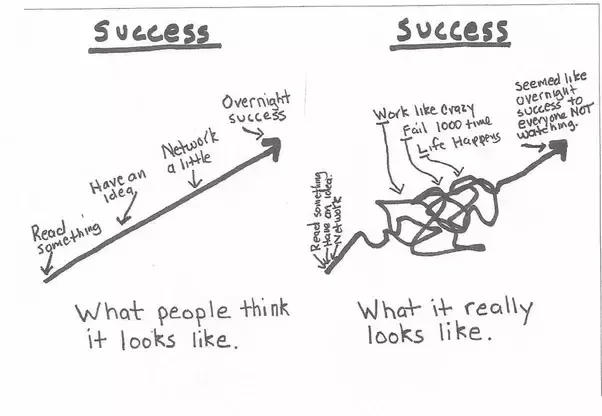 Success
Read
something
Have an
idea
Network
a little
Overnight
success
What people think
it looks like.
Success
Read something
Have an idea.
Network
Work like crazy
Fail 1000 time
Life Happens
Seemed like
overnight
success to
everyone NOT
watching.
What it really
looks like.